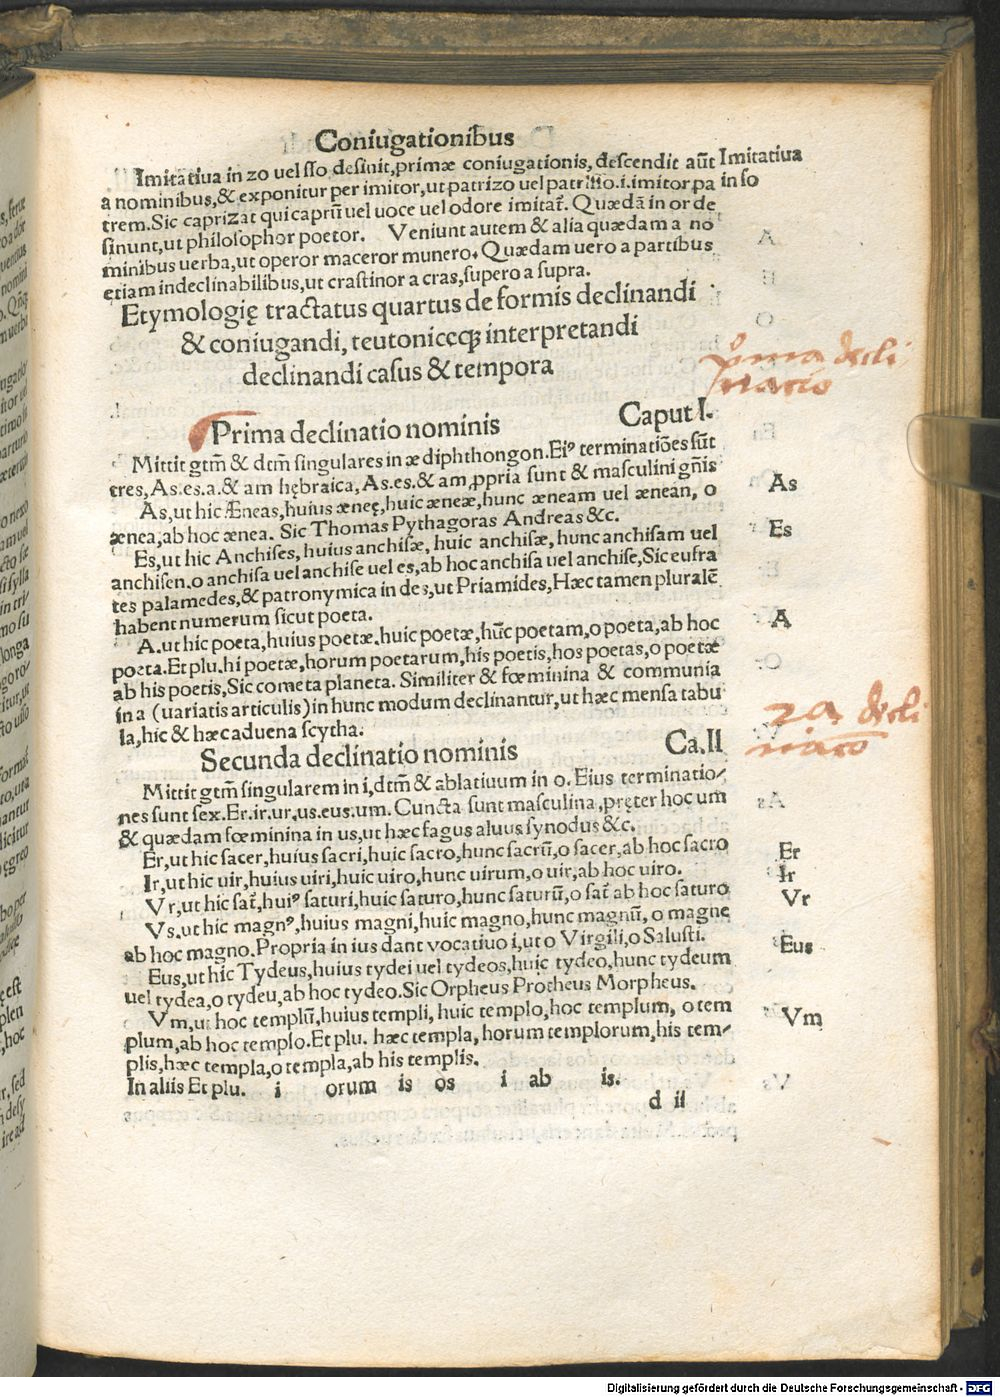 Coniugationibus
Imitatiua in zo uel sso desinit, primæ coniugationis, descendit aūt Imitatiua
a nominibus, & exponitur per imitor, ut patrizo uel patrisso .i. imitor pa in so
trem. Sic caprizat qui caprū uel uoce uel odore imitat̄. Quædā in or de
sinunt, ut philosophor poetor. Veniunt autem & alia quædam a no
minibus uerba, ut operor maceror munero. Quædam uero a partibus
etiam indeclinabilibus, ut crastinor a cras, supero a supra.
Etymologię tractatus quartus de formis declinandi
& coniugandi, teutoniceqꝫ interpretandi
declinandi casus & tempora
prima decli
natio
Prima declinatio nominis Caput I.
Mittit gtm̄ & dtm̄ singulares in æ diphthongon. Eiꝰ terminatiōes sūt
tres, As. es. a. & am hębraica, As. es. & am, ꝓpria sunt & masculini gn̄is
As, ut hic Æneas, huius æneę, huic æneæ, hunc æneam uel ænean, o As
ænea, ab hoc ænea. Sic Thomas Pythagoras Andreas &c.
Es, ut hic Anchises, huius anchisæ, huic anchisæ, hunc anchisam uel Es
anchisen. o anchisa uel anchise uel es, ab hoc anchisa uel anchise, Sic eufra
tes palamedes, & patronymica in des, ut Priamides, Hæc tamen pluralē
habent numerum sicut poeta.
A. ut hic poeta, huius poetæ. huic poetæ, hūc poetam, o poeta, ab hoc A
poeta. Et plu. hi poetæ, horum poetarum, his poetis, hos poetas, o poetæ
ab his poetis, Sic cometa planeta. Similiter & fœminina & communia
in a (uariatis articulis) in hunc modum declinantur, ut hæc mensa tabu
la, hic & hæc aduena scytha.
2a decli
natio
Secunda declinatio nominis Ca. II
Mittit gtm̄ singularem in i, dtm̄ & ablatiuum in o. Eius terminatio⸗
nes sunt sex. Er. ir. ur. us. eus. um. Cuncta sunt masculina, pręter hoc um
& quædam fœminina in us, ut hæc fagus aluus synodus &c.
Er, ut hic sacer, huius sacri, huic sacro, hunc sacrū, o sacer, ab hoc sacro Er
Ir, ut hic uir, huius uiri, huic uiro, hunc uirum, o uir, ab hoc uiro. Ir
Vr, ut hic sat̄, huiꝰ saturi, huic saturo, hunc saturū, o sat̄ ab hoc saturo Vr
Vs. ut hic magnꝰ, huius magni, huic magno, hunc magnū, o magne
ab hoc magno. Propria in ius dant vocatiuo i, ut o Virgili, o Salusti. Eus
Eus, ut hic Tydeus, huius tydei uel tydeos, huic tydeo, hunc tydeum
uel tydea, o tydeu, ab hoc tydeo. Sic Orpheus Protheus Morpheus.
Vm, ut hoc templū, huius templi, huic templo, hoc templum, o tem Vm
plum, ab hoc templo. Et plu. hæc templa, horum templorum, his tem⸗
plis, hæc templa, o templa, ab his templis.
In aliis Et plu. i orum is os i ab is.
d ii
Digitalisierung gefördert durch die Deutsche Forschungsgemeinschaft - DFG